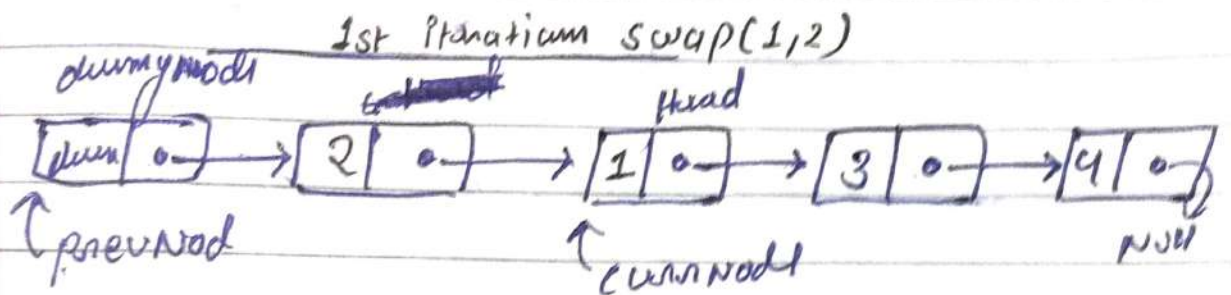 1st iteration swap(1,2)
dummynode
Head
dum 2 1 3 4
prevNod
currNode
Null